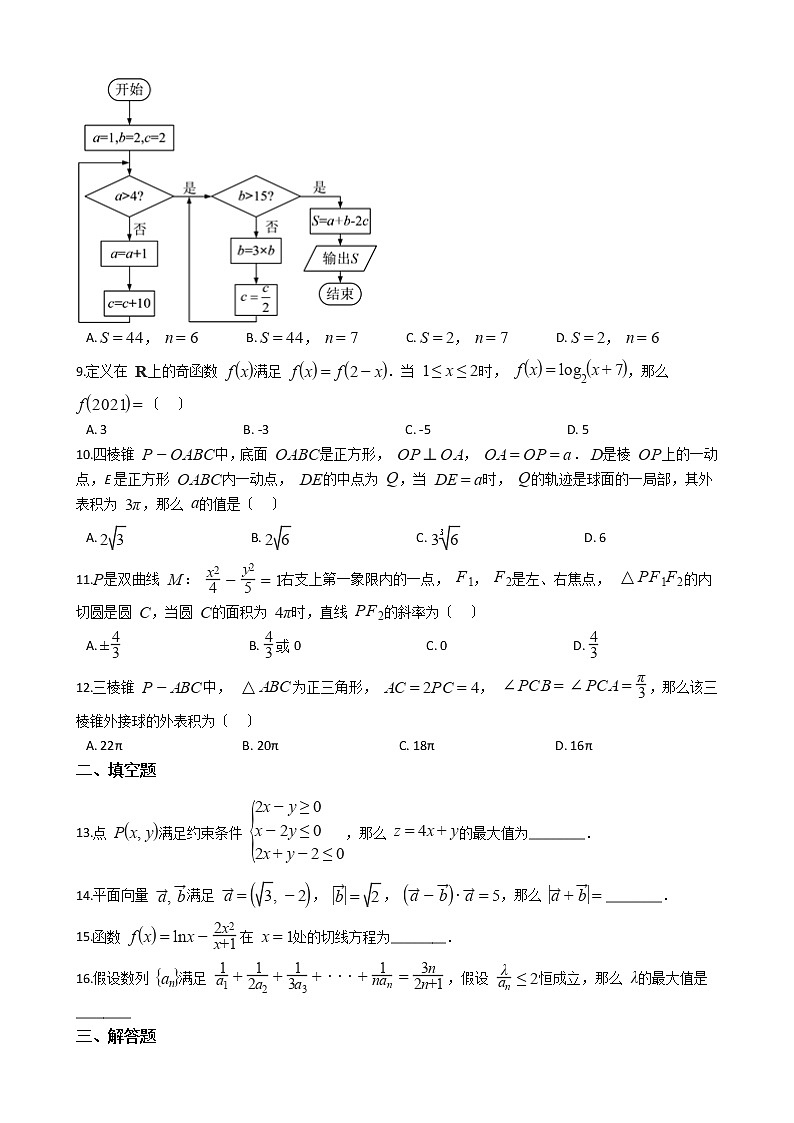 开始
a=1,b=2,c=2
a>4?
是
b>15?
是
S=a+b-2c
否
否
a=a+1
b=3×b
输出S
c=c+10
c=c/2
结束
A. S=44， n=6 B. S=44， n=7 C. S=2， n=7 D. S=2， n=6
9.定义在 R上的奇函数 f(x)满足 f(x)=f(2−x)．当 1≤x≤2时， f(x)=log₂(x+7)，那么
f(2021)=〔 〕
A. 3 B. -3 C. -5 D. 5
10.四棱锥 P−OABC中，底面 OABC是正方形， OP⊥OA， OA=OP=a． D是棱 OP上的一动
点，E是正方形 OABC内一动点， DE的中点为 Q，当 DE=a时， Q的轨迹是球面的一局部，其外
表积为 3π，那么 a的值是〔 〕
A. 2√3 B. 2√6 C. 3∛6 D. 6
11.P是双曲线 M： x²/4−y²/5=1右支上第一象限内的一点， F₁， F₂是左、右焦点， △PF₁F₂的内
切圆是圆 C，当圆 C的面积为 4π时，直线 PF₂的斜率为〔 〕
A. ±4/3 B. 4/3或 0 C. 0 D. 4/3
12.三棱锥 P−ABC中， △ABC为正三角形， AC=2PC=4， ∠PCB=∠PCA=π/3，那么该三
棱锥外接球的外表积为〔 〕
A. 22π B. 20π C. 18π D. 16π
二、填空题
13.点 P(x, y)满足约束条件 {2x−y≥0
x−2y≤0
2x+y−2≤0 ，那么 z=4x+y的最大值为________．
14.平面向量 a⃗, b⃗满足 a⃗=(√3, −2)， |b⃗|=√2， (a⃗−b⃗)·a⃗=5，那么 |a⃗+b⃗|= ________．
15.函数 f(x)=lnx−2x²/(x+1)在 x=1处的切线方程为________．
16.假设数列 {aₙ}满足 1/a₁+1/2a₂+1/3a₃+···+1/naₙ=3n/(2n+1)，假设 λ/aₙ≤2恒成立，那么 λ的最大值是
________
三、解答题